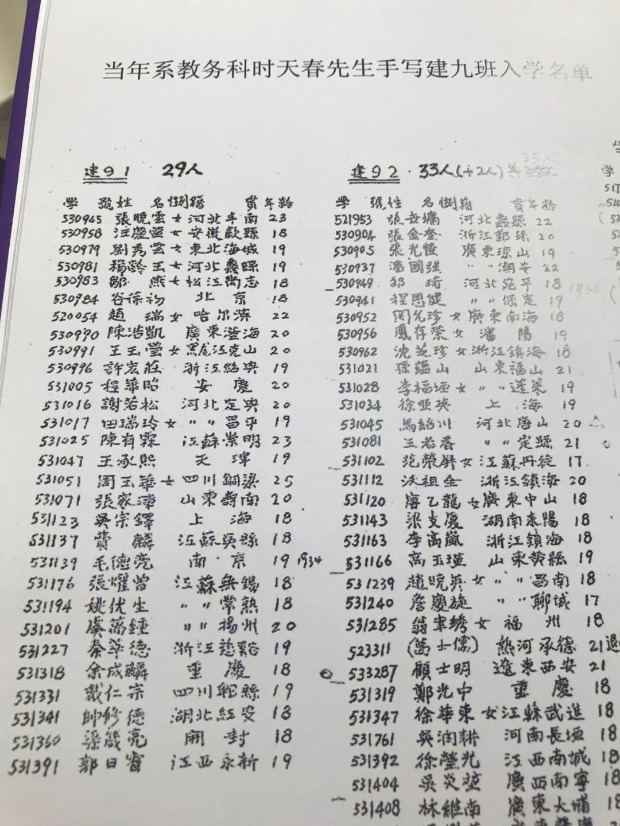 当年系教务科时天春先生手写建九班入学名单
建91 29人
学 号 姓 名 籍 贯 年龄
530945 張曉雲 女 河北丰南 23
530958 汪慶萱 女 安徽歙縣 18
530979 劉秀雲 女 東北海城 19
530981 楊齡玉 女 河北蠡縣 19
530983 鄒燕 女 松江尚志 18
530984 谷葆初 北京 18
520054 趙瑞 女 哈尔濱 22
530990 陳浩凱 廣東澄海 20
530991 王玉瑩 女 黑龙江克山 20
530996 許宏莊 浙江紹興 19
531005 程華昭 安慶 20
531016 謝若松 河北定興 20
531017 田瑞玲 女 〃〃昌平 19
531025 陳有霖 江蘇崇明 23
531047 王承熙 天津 19
531051 周玉華 女 四川銅梁 25
531071 張家 山東莒南 20
531123 吳宗鐸 上海 18
531137 費麟 江蘇吳縣 18
531139 毛德亮 南京 19 1934
531176 張耀曾 江蘇無錫 18
531194 姚伏生 〃〃常熟 18
531201 虞萬鍾 〃〃揚州 20
531227 秦華德 浙江慈谿 19
531318 余成麟 重慶 18
531331 戴仁宗 四川郫縣 19
531341 帥修德 湖北紅安 18
531360 梁箴亮 開封 18
531391 郭日睿 江西永新 19
建92 33人(+2人)
学 号 姓 名 籍 贯 年龄
521953 張女 河北蠡縣 22
530904 張金奎 浙江鄞縣 20
530905 張光愷 廣東瓊山 19
530937 潘國強 〃〃潮安 22
530949 邹琦 河北宛平 18
530941 程恩健 〃〃保定 19
530952 周允珍 女 廣東南海 18
530956 鳳存榮 女 瀋陽 19
530962 沈芝珍 女 浙江鎮海 18
531021 孫蘊山 山東福山 21
531028 李福垣 女 〃〃蓬萊 19
531034 徐亞英 上海 19
531045 馬紹川 河北唐山 20
531081 王若愚 〃〃定縣 21
531102 范榮 女 江蘇丹徒 17
531112 沃祖全 浙江鎮海 20
531120 唐乙龍 女 廣東中山 18
531143 梁支慶 湖南耒陽 18
531163 李高嵐 浙江鎮海 18
531166 高玉瑱 山東黄縣 19
531239 趙曉英 女 〃〃莒南 18
531240 詹慶旋 〃〃聊城 17
531285 翁 女 福州 18
523311 (萬士儒) 熱河承德 21
533287 顧士明 遼東西安 21
531319 鄭光中 重慶 18
531347 徐華東 女 江蘇武進 18
531761 吳润耕 河南長垣 18
531392 徐瑩光 江西南城 18
531404 吳炎 廣西南寧 18
531408 林維南 廣東大埔 18